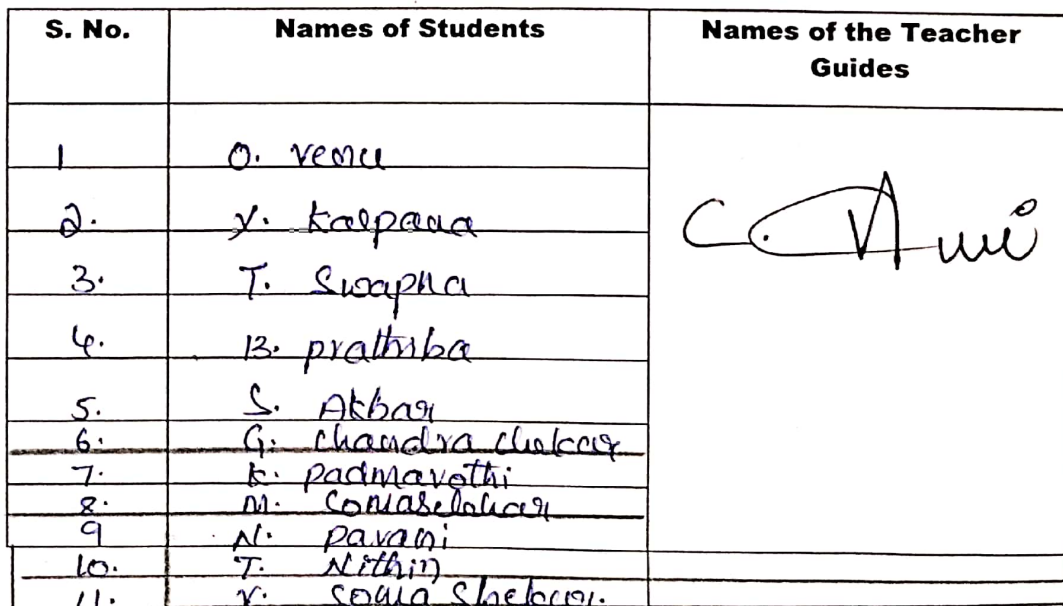 S. No. Names of Students Names of the Teacher Guides
1 O. venu
2. Y. kalpana
3. T. Swapna
4. B. prathiba
5. S. Akbar
6. G. chandra chekar
7. K. padmavathi
8. M.
9 N. pavani
10. T. Nithin
11. Y. soma shekar.